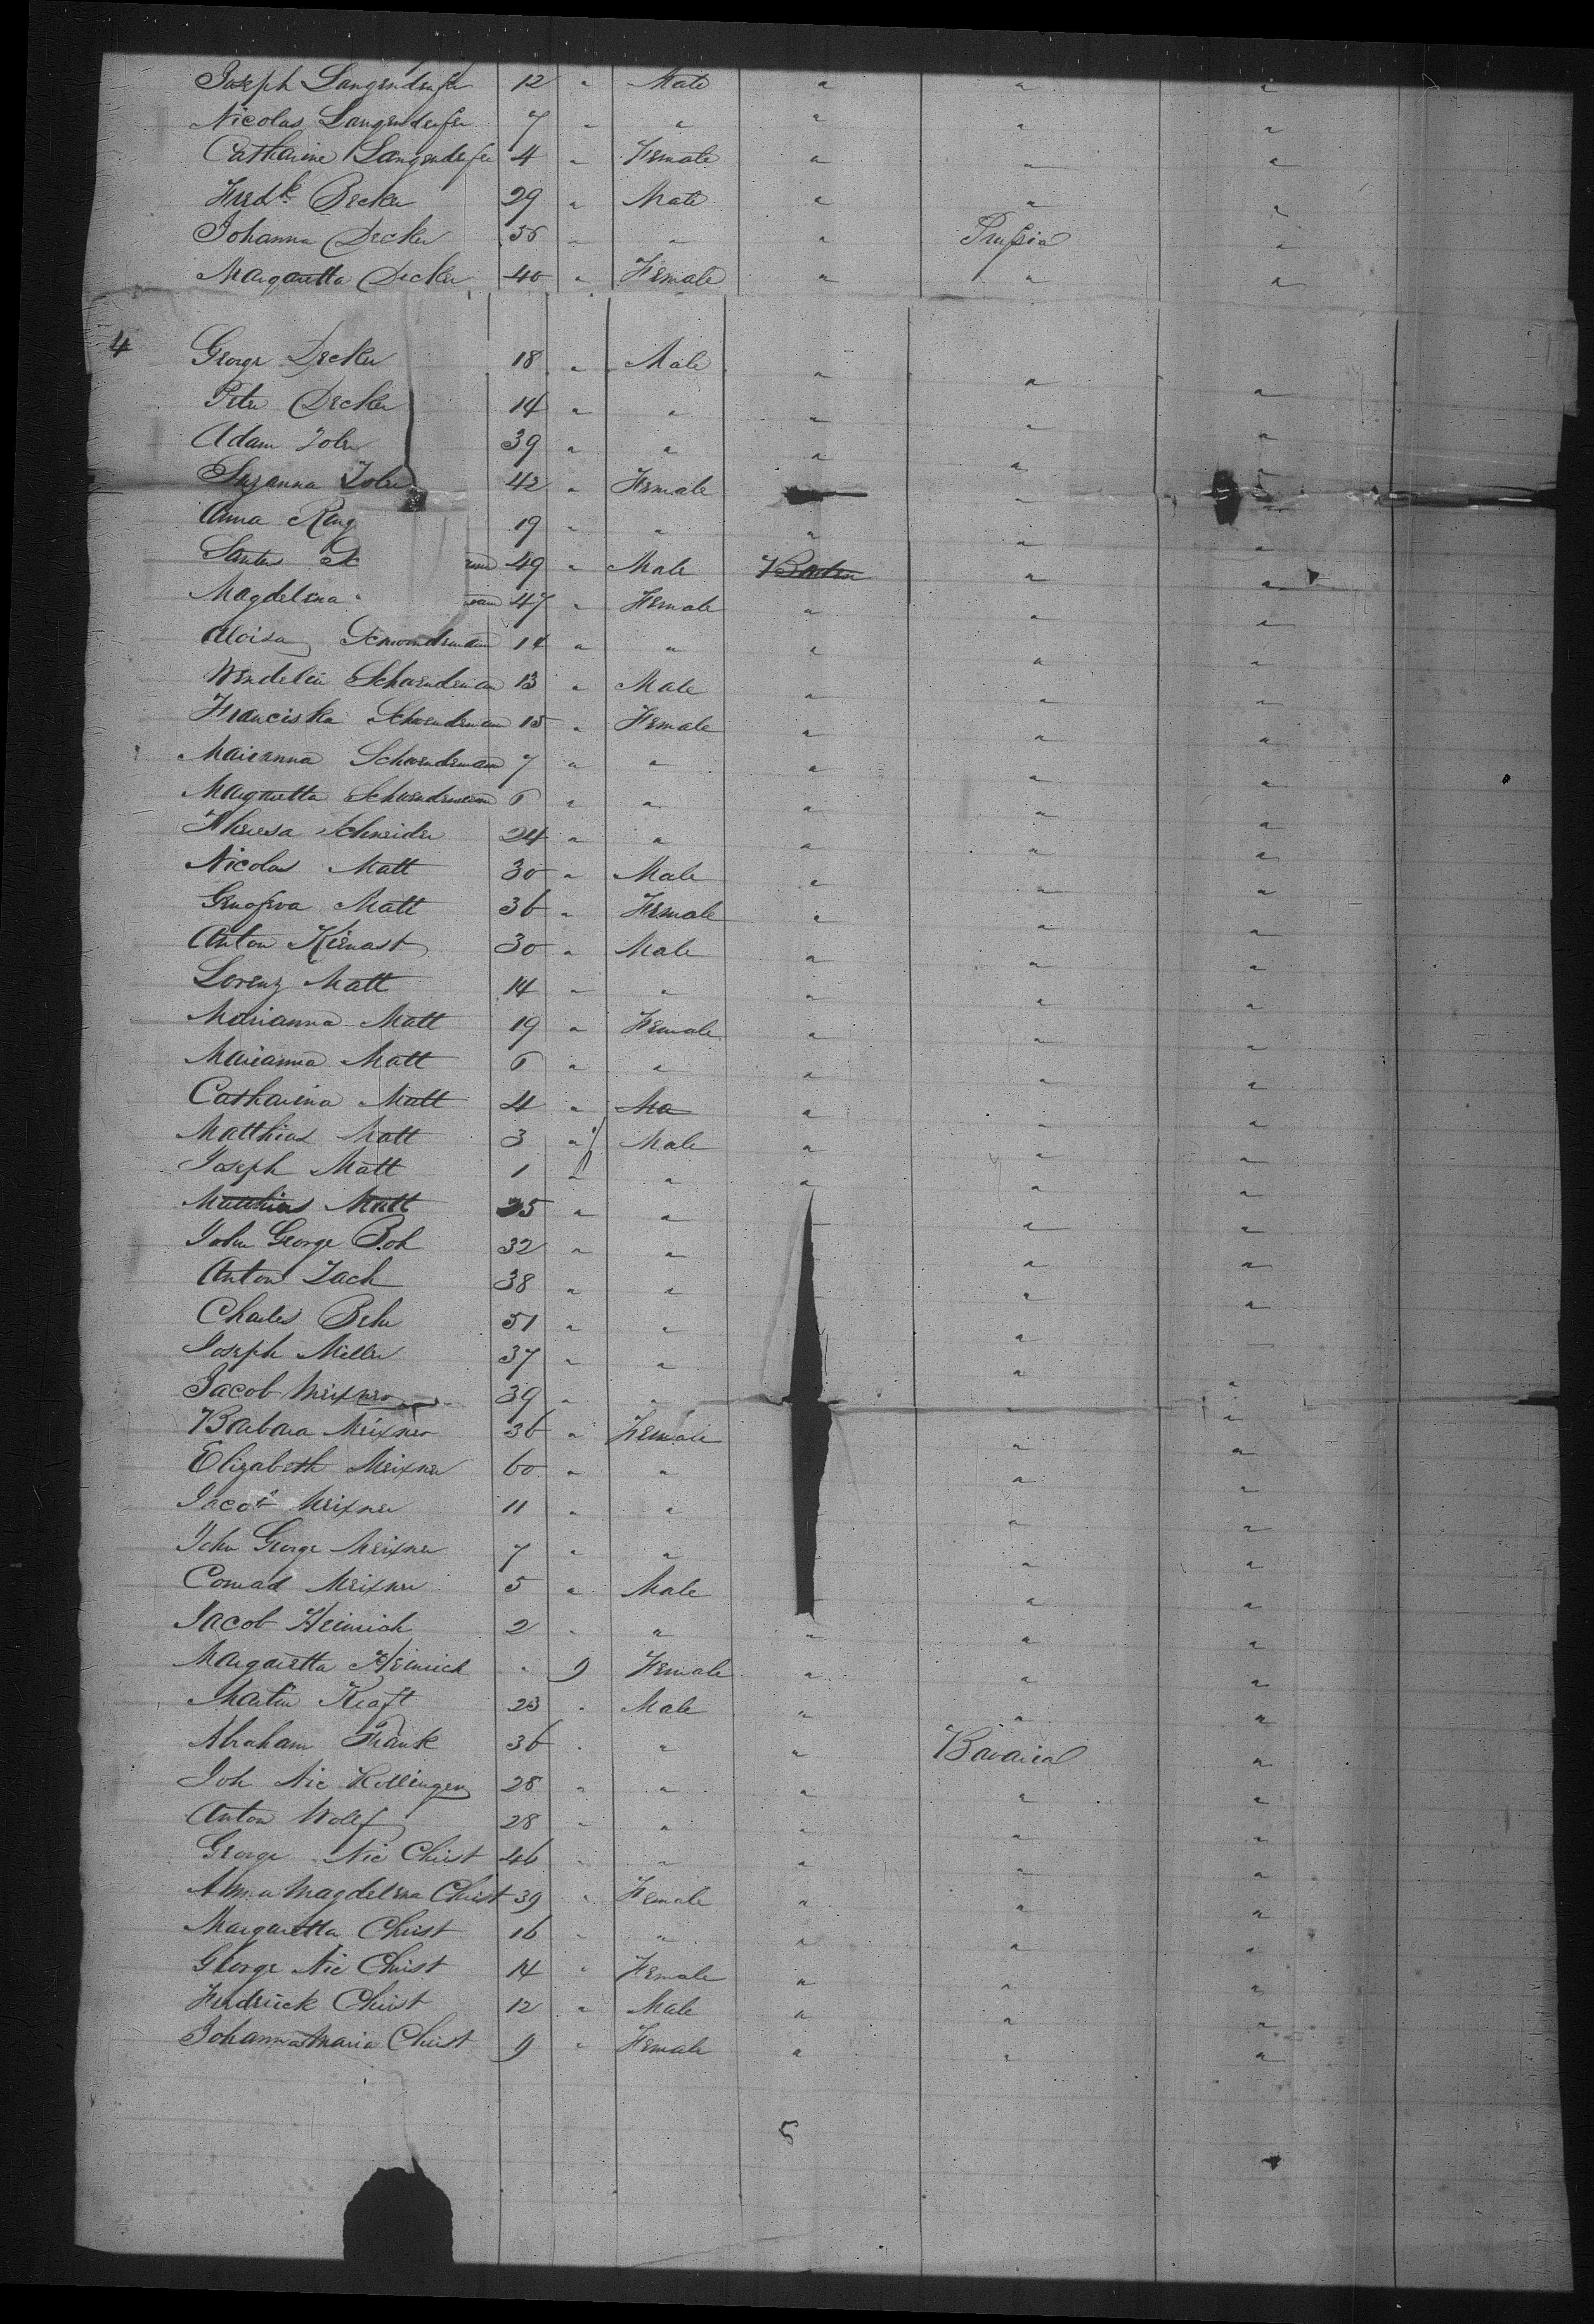 Joseph Langenderfer 12 " Male " " "
Nicolas Langenderfer 7 " " " " "
Catharine Langenderfer 4 " Female " " "
Fredk. Becker 29 " Male " " "
Johanna Decker 56 " " " Prussia "
Margaretta Decker 40 " Female " " "
4 George Decker 18 " Male " " "
Peter Decker 14 " " " " "
Adam 39 " " " " "
Suzanna 42 " Female " "
Anna 19 " " " " "
49 " Male Baden " "
Magdelena 47 " Female " " "
Aloisa 14 " " " " "
Wendelin Schwendeman 13 " Male " " "
Franciska Schwendeman 15 " Female " " "
Marianna Schwendeman 7 " " " " "
Margaretta Schwendeman 6 " " " " "
Theresa Schneider 24 " " " " "
Nicolas Matt 30 " Male " " "
Genofeva Matt 36 " Female " " "
Anton Kienast 30 " Male " " "
Lorenz Matt 14 " " " " "
Marianna Matt 19 " Female " " "
Marianna Matt 6 " " " " "
Catharina Matt 4 " Ma " " "
Matthias Matt 3 " Male " " "
Joseph Matt 1 " " " " "
Matthias Matt 25 " " " "
John George Boh 32 " " " "
Anton Zach 38 " " " "
Charles 51 " " "
Joseph Miller 37 " " " "
Jacob Meixner 39 " " " "
Barbara Meixner 36 " Female " "
Elizabeth Meixner 60 " " " "
Jacob Meixner 11 " " " "
John George Meixner 7 " " " "
Conrad Meixner 5 " Male " "
Jacob Heinrich 2 " " " " "
Margaretta Heinrich " 9 Female " " "
Martin Kraft 23 " Male " " "
Abraham Frank 36 " " " Bavaria "
Joh Nic 28 " " " " "
Anton Wolf 28 " " " " "
George Nic Christ 46 " " " " "
Anna Magdelena Christ 39 " Female " " "
Margaretta Christ 16 " " " " "
George Nic Christ 14 " Female " " "
Fredrick Christ 12 " Male " " "
Johanna Maria Christ 9 " Female " " "
5